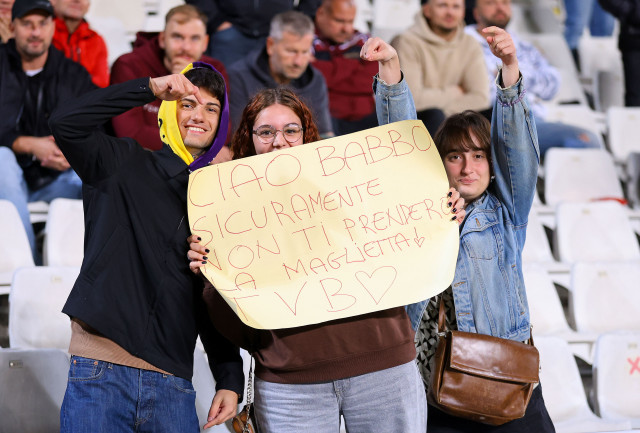 CIAO BABBO
SICURAMENTE
NON TI PRENDERÒ
LA MAGLIETTA!
TVB ♡